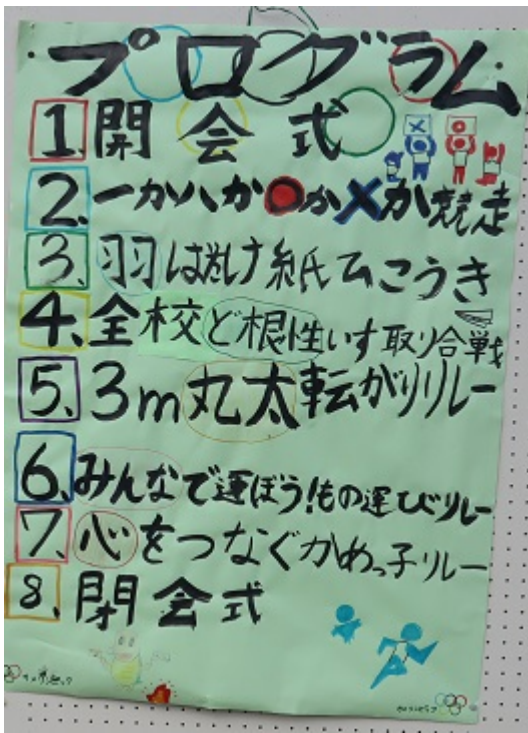 プログラム
1.開会式
2.一か八か○か×か競走
3.羽ばたけ紙ひこうき
4.全校ど根性いす取り合戦
5.3m丸太転がりリレー
6.みんなで運ぼう!もの運びリレー
7.心をつなぐかめっ子リレー
8.閉会式